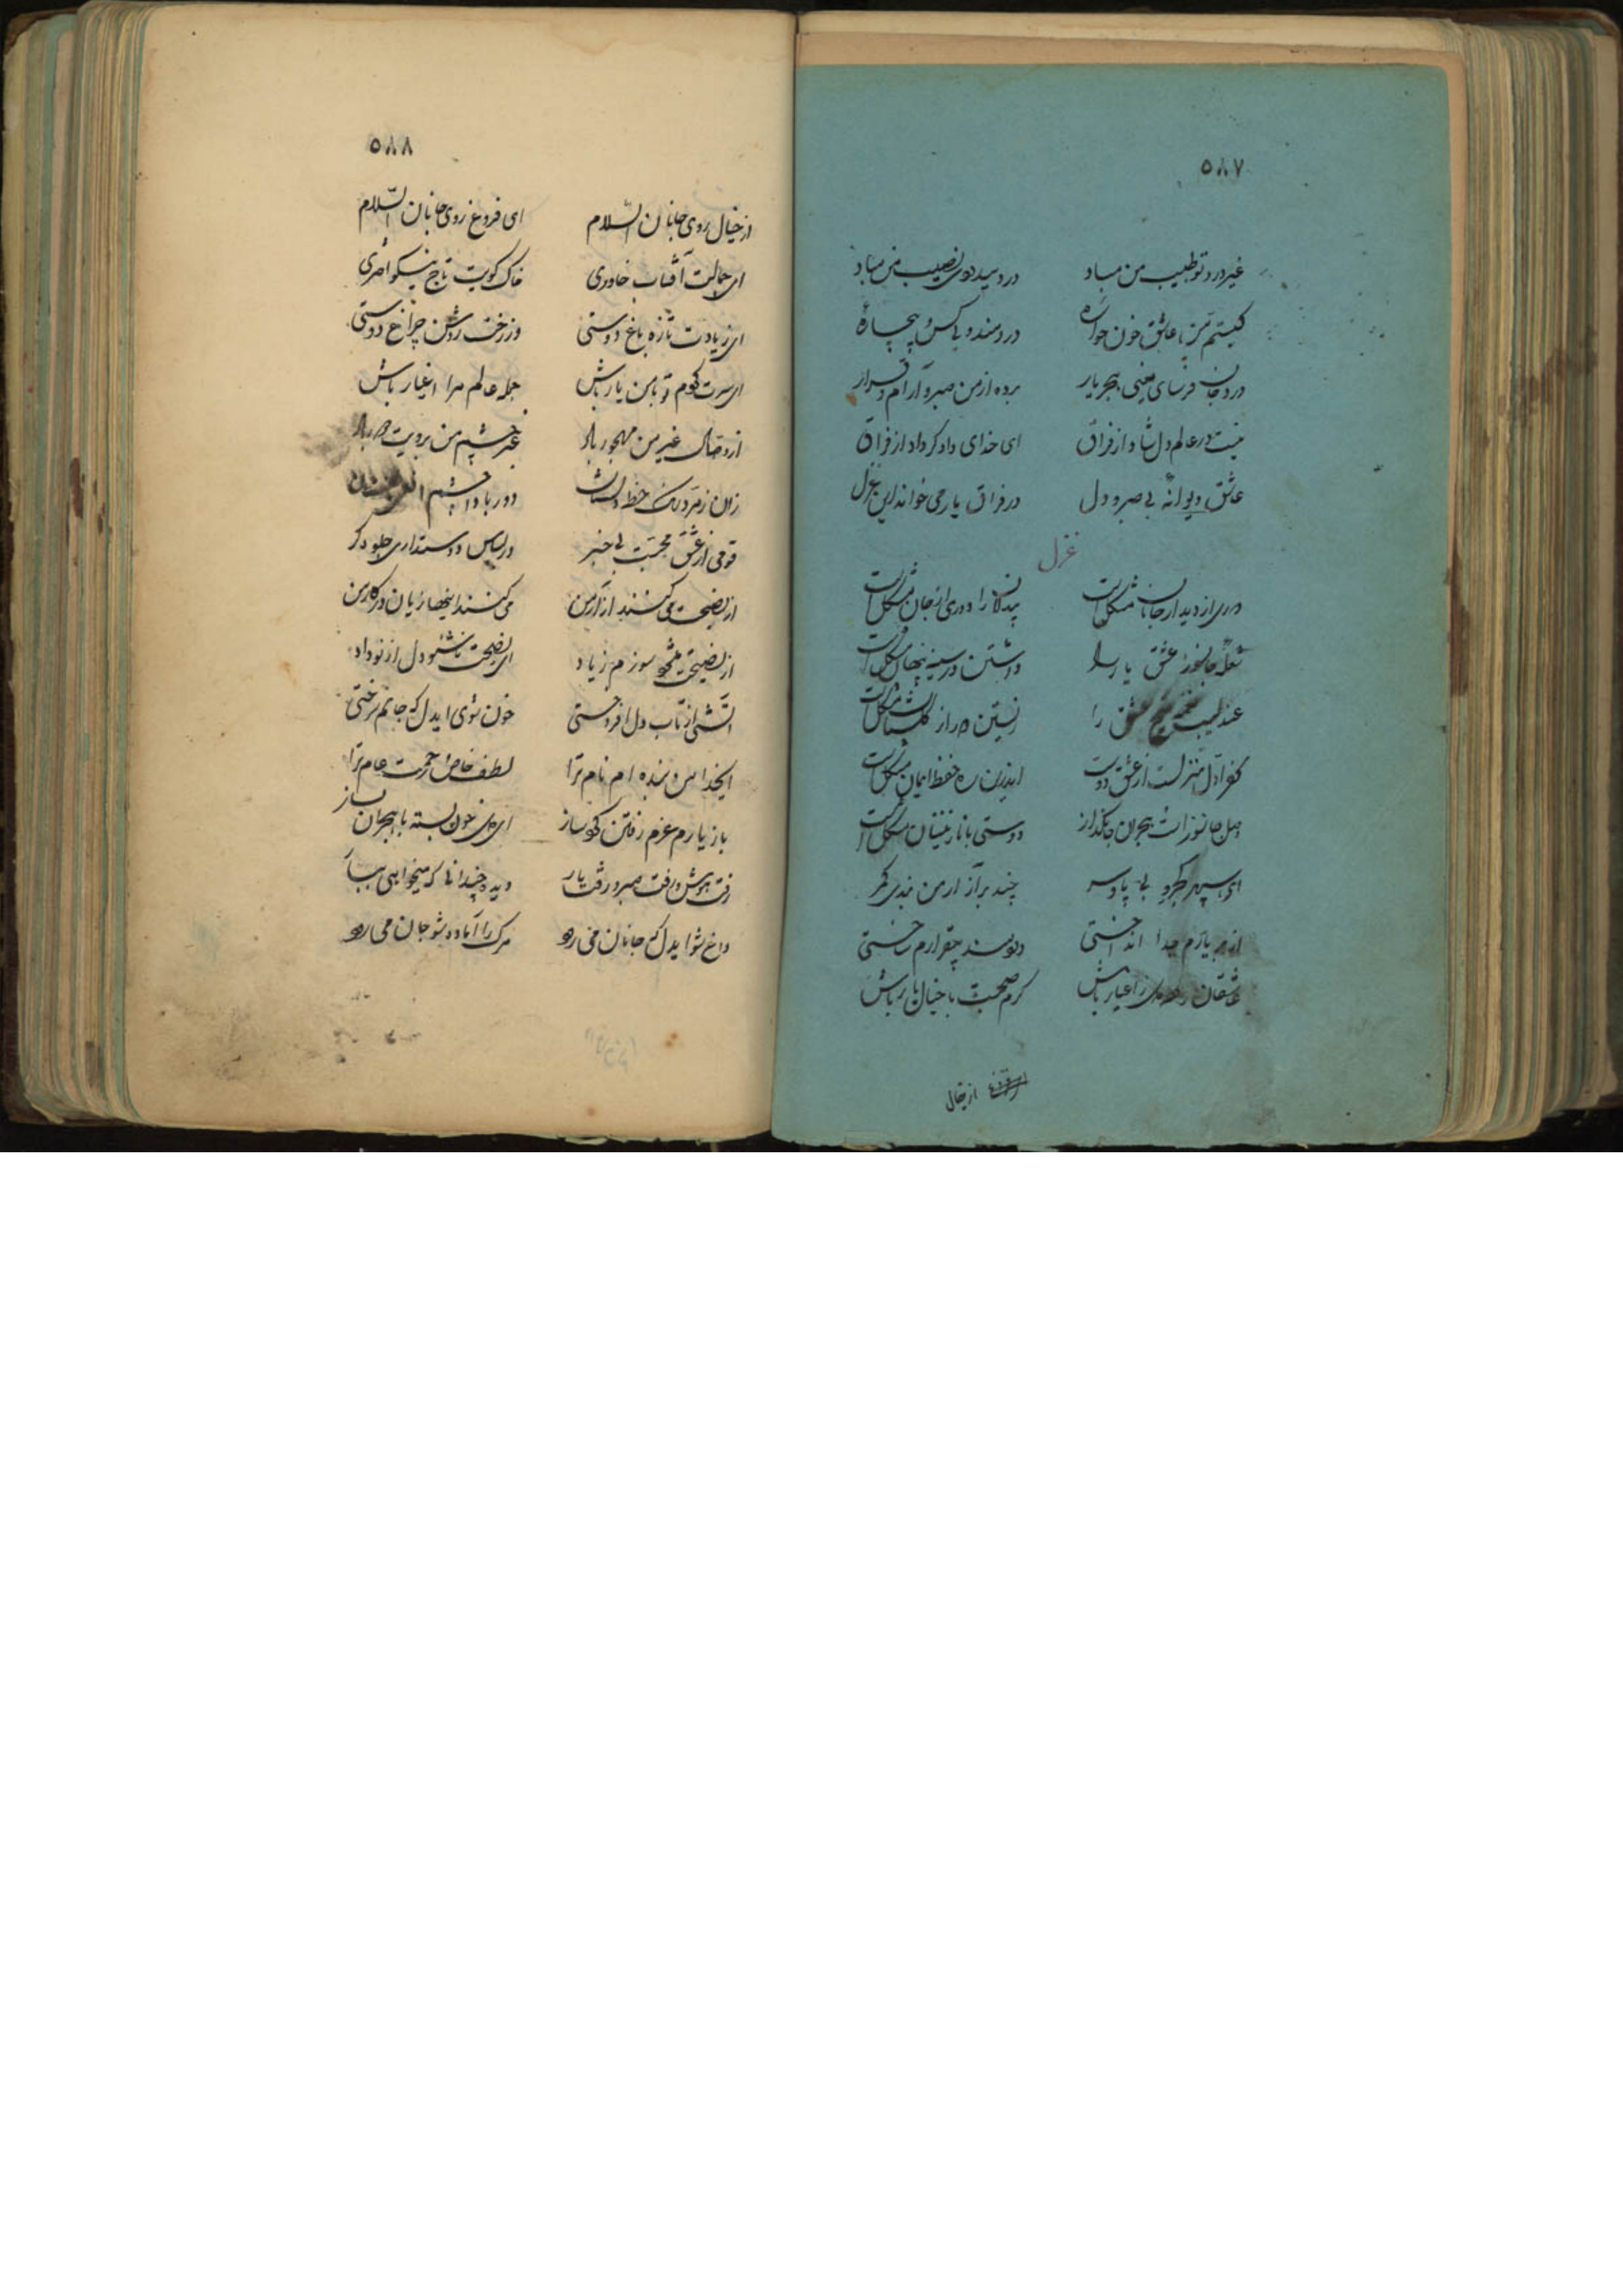 ٥٨٧
غیر درد تو طبیب من مباد درد بیدردی نصیب من مباد
کیستم من عاشق خون خواره دردمند و بی کس و بیچارهٔ
درد جان فرسای یعنی هجر یار برده از من صبر و آرام و قرار
نیست در عالم دل شاد از فراق ای خدای دادگر داد از فراق
عاشق دیوانهٔ بی صبر و دل در فراق یار می خواند این غزل
غزل
دوری از دیدار جانان مشکل است بیدلان را دوری از جان مشکل است
شعلهٔ جانسوز عشق یار را داشتن در سینه پنهان مشکل است
عندلیب عشق را زیستن دور از گلستان مشکل است
کفر اول منزلست از عشق دوست اندرین ره حفظ ایمان مشکل است
وصل جانسوز است هجران جانگداز دوستی با نازنینان مشکل است
ای سپهر کجرو بی پا و سر چند بر آزار من بندی کمر
از بر یارم جدا انداختی بیقرارم ساختی
عاشقان باش گرم صحبت با خیال یار باش
از خیال
٥٨٨
از خیال روی جانان السّلام ای فروغ روی جانان السّلام
ای جمالت آفتاب خاوری خاک کویت تاج نیکو اختری
ای ز یادت تازه باغ دوستی وز رخت روشن چراغ دوستی
ای سرت گردم تو با من یار باش جمله عالم مرا اغیار باش
از وصالت غیر من مهجور باد غیر چشم من برویت باد
زان زمرد رنگ خط دور بادا چشم
قومی از عشق محبت بی خبر در لباس دوستداری جلوه گر
از نصیحت می کنند آزار من می کنند اینها زیان در کار من
از نصیحت سوزم زیاد ای نصیحت نشنو دل از تو داد
آتشی از تاب دل افروختی خون شوی ایدل که جانم سوختی
ایخدا من بنده ام نام ترا لطف خاص و رحمت عام ترا
باز یارم عزم رفتن کرد ساز ای دل خون بسته با هجران بساز
رفت هوش و رفت صبر و رفت یار دیده چندانی که میخواهی ببار
داغ شو ایدل که جانان می رود مرگ را آماده شو جان می رود